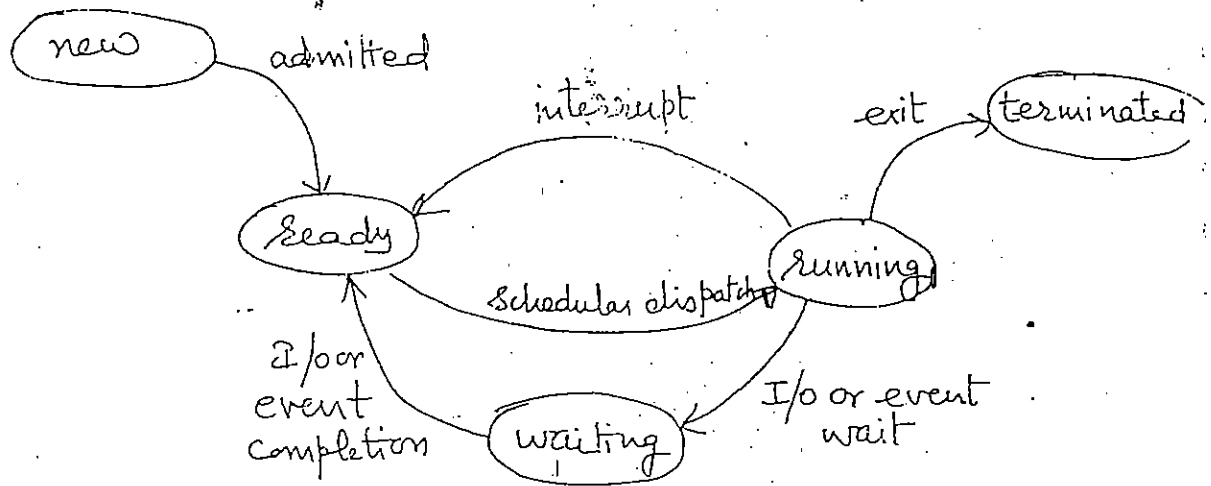 new
admitted
interrupt
exit
terminated
ready
running
schedular dispatch
I/o or
event
completion
waiting
I/o or event
wait